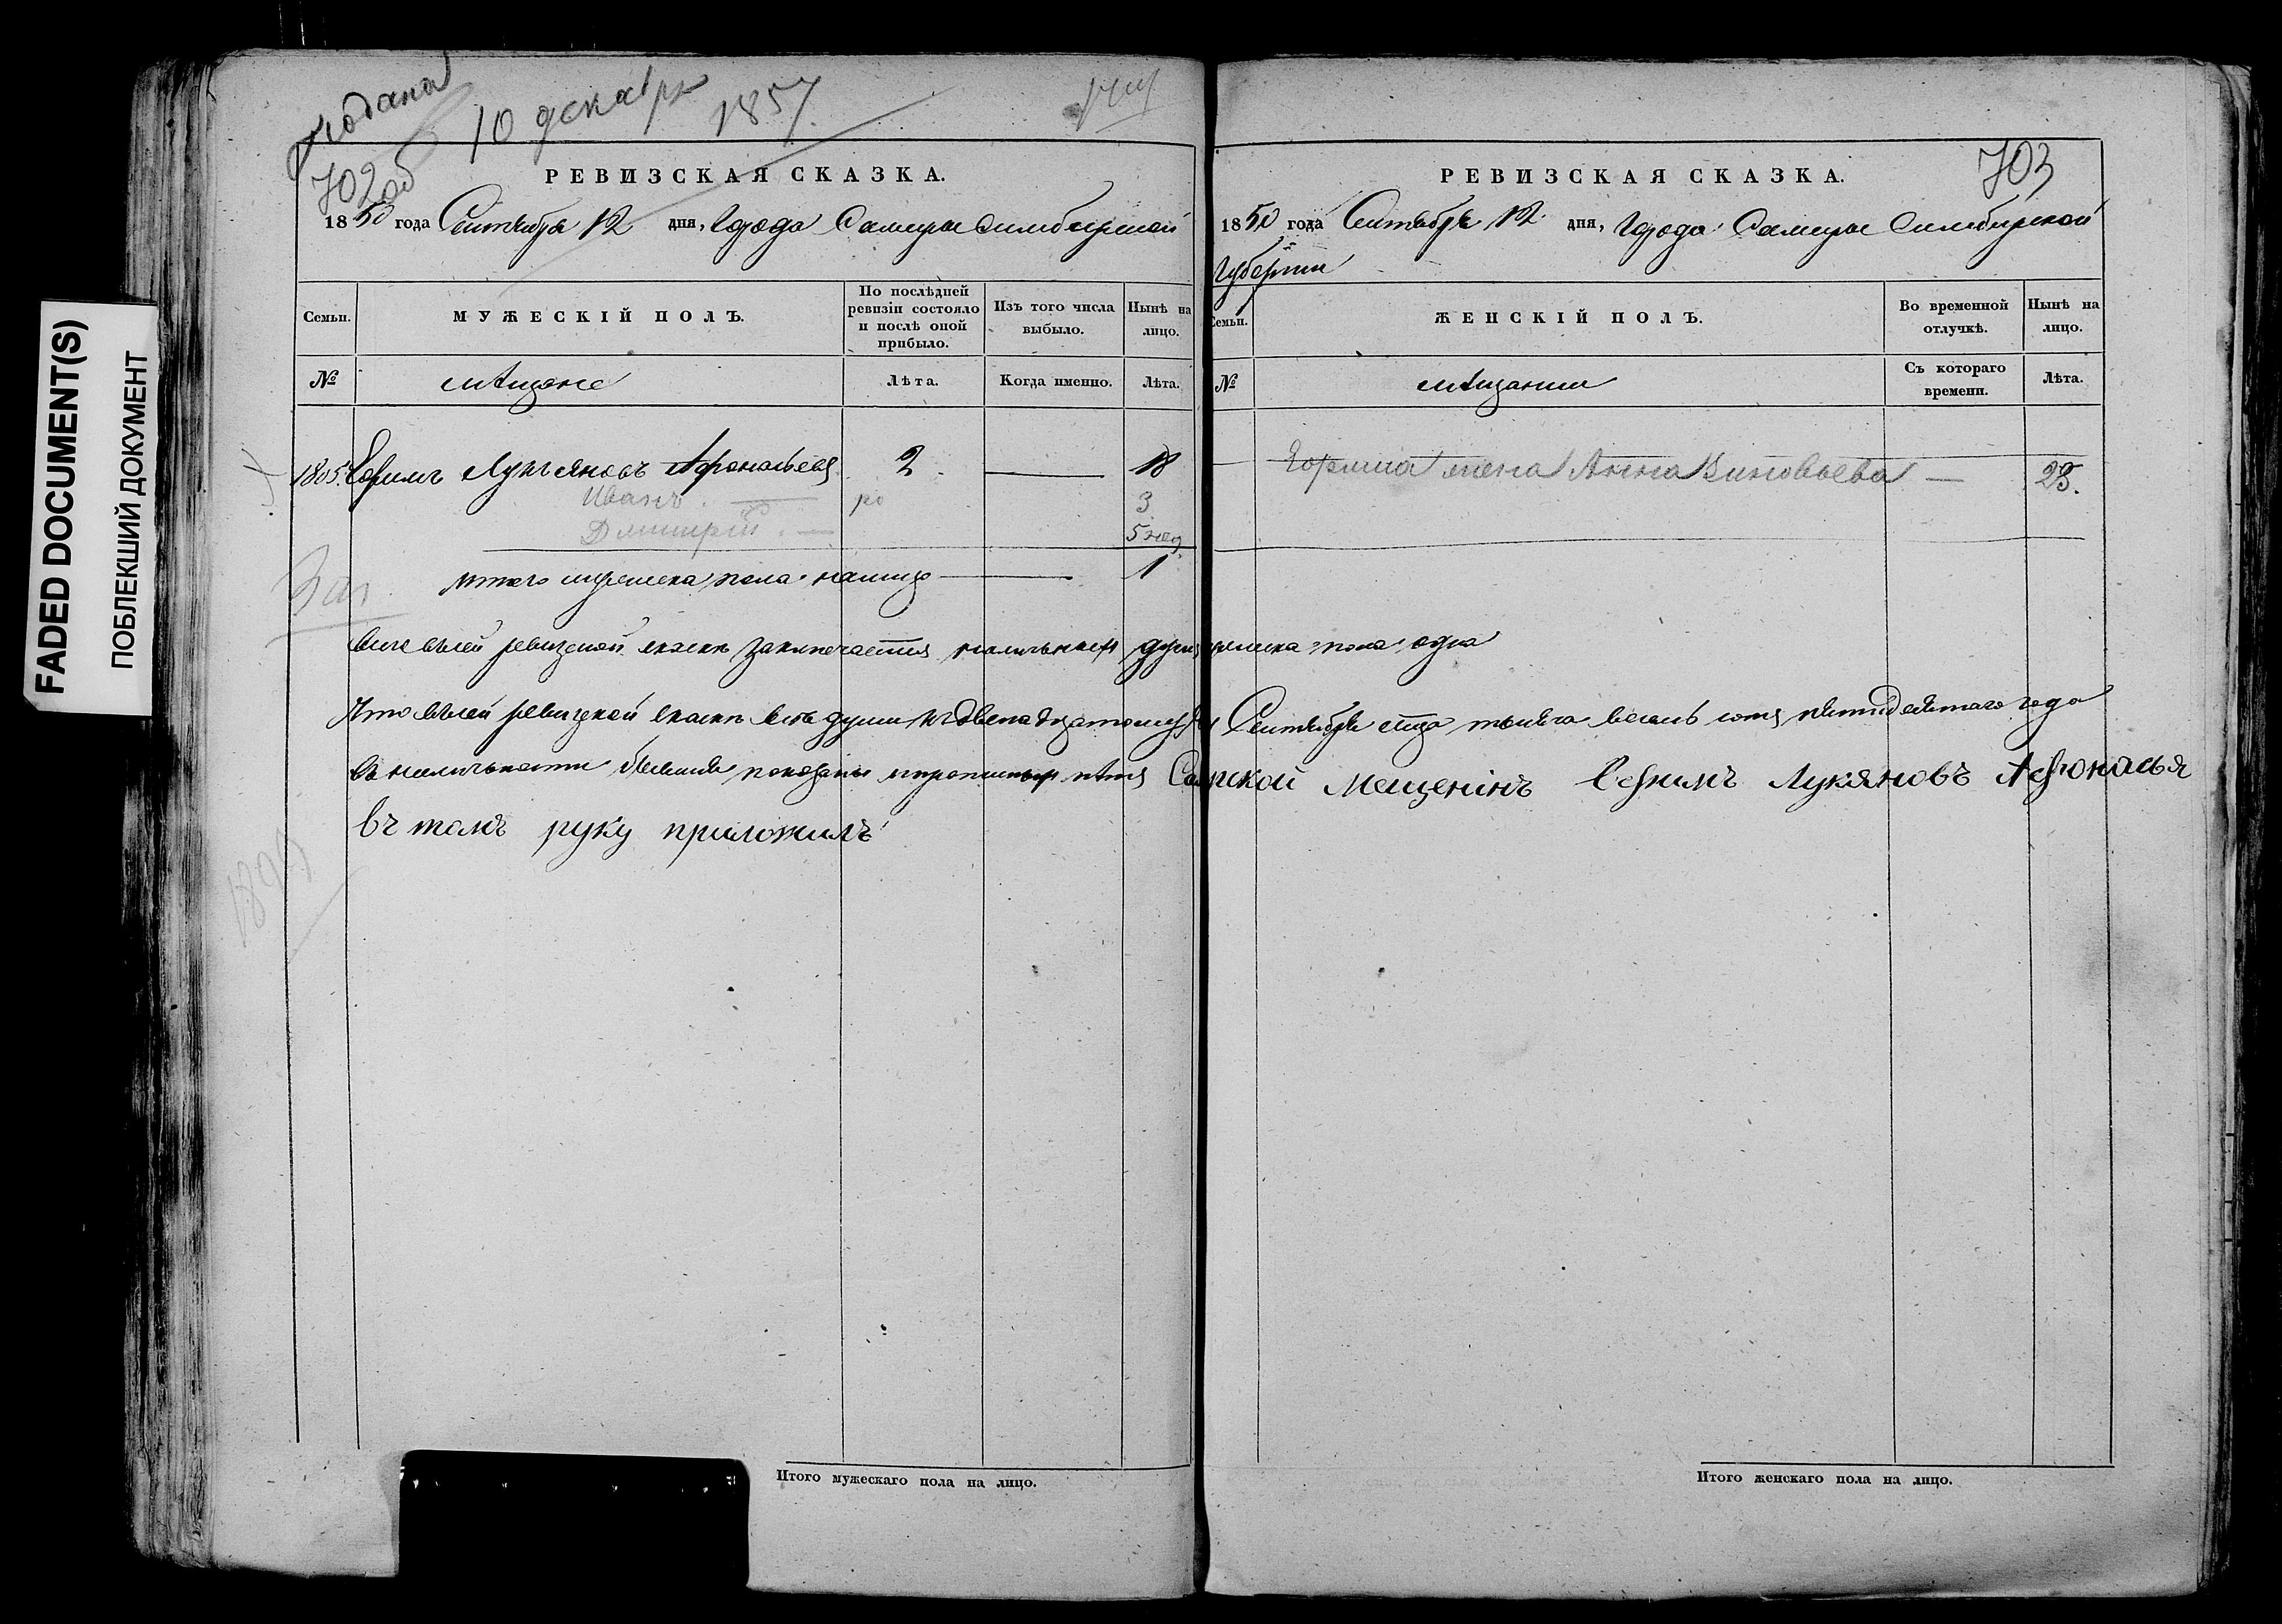 FADED DOCUMENT(S)
ПОБЛЕКШИЙ ДОКУМЕНТ
подана 10 декабря 1857.
702 об
РЕВИЗСКАЯ СКАЗКА.
1850 года Сентября 12 дня, Города Самары Симбирской
Семьи.
МУЖЕСКІЙ ПОЛЪ.
По послѣдней ревизіи состояло и послѣ оной прибыло.
Изъ того числа выбыло.
Нынѣ на лицо.
№
мѣщане
Лѣта.
Когда именно.
Лѣта.
1805. Ефимъ Лукъяновъ Афонасьевъ 2 — 18
Иванъ. — ро 3
Дмитрій. — 5 нед.
итого мужеска пола налицо — 1
703
РЕВИЗСКАЯ СКАЗКА.
1850 года Сентября 12 дня, Города Самары Симбирской
Губернии
Семьи.
ЖЕНСКІЙ ПОЛЪ.
Во временной отлучкѣ.
Нынѣ на лицо.
№
мѣщанки
Съ котораго времени.
Лѣта.
Ефима жена Анна Зиновьева — 23.
всей ревизской сказкѣ заключается наличных душ мужеска пола одна
Что всей ревизской сказкѣ все души к двенадцатому Сентября мца тысяча восемь сотъ пятидесятаго года
в наличности бывшия показаны и прописных нѣтъ Самрской мещенінъ Ефимъ Лукяновъ Афонасья
въ томъ руку приложилъ
Итого мужескаго пола на лицо.
Итого женскаго пола на лицо.